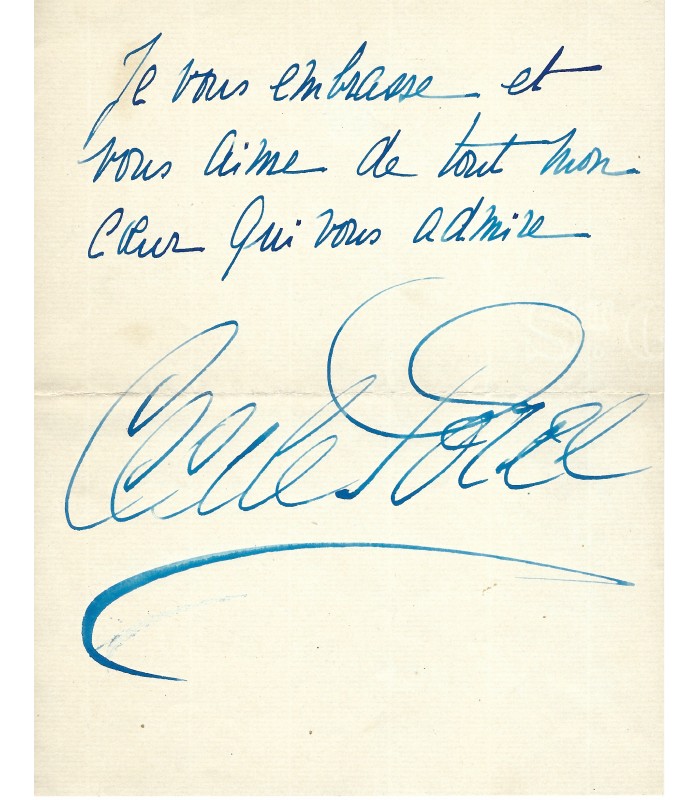 Je vous embrasse et
vous aime de tout mon
Cœur qui vous admire
Cécile Sorel